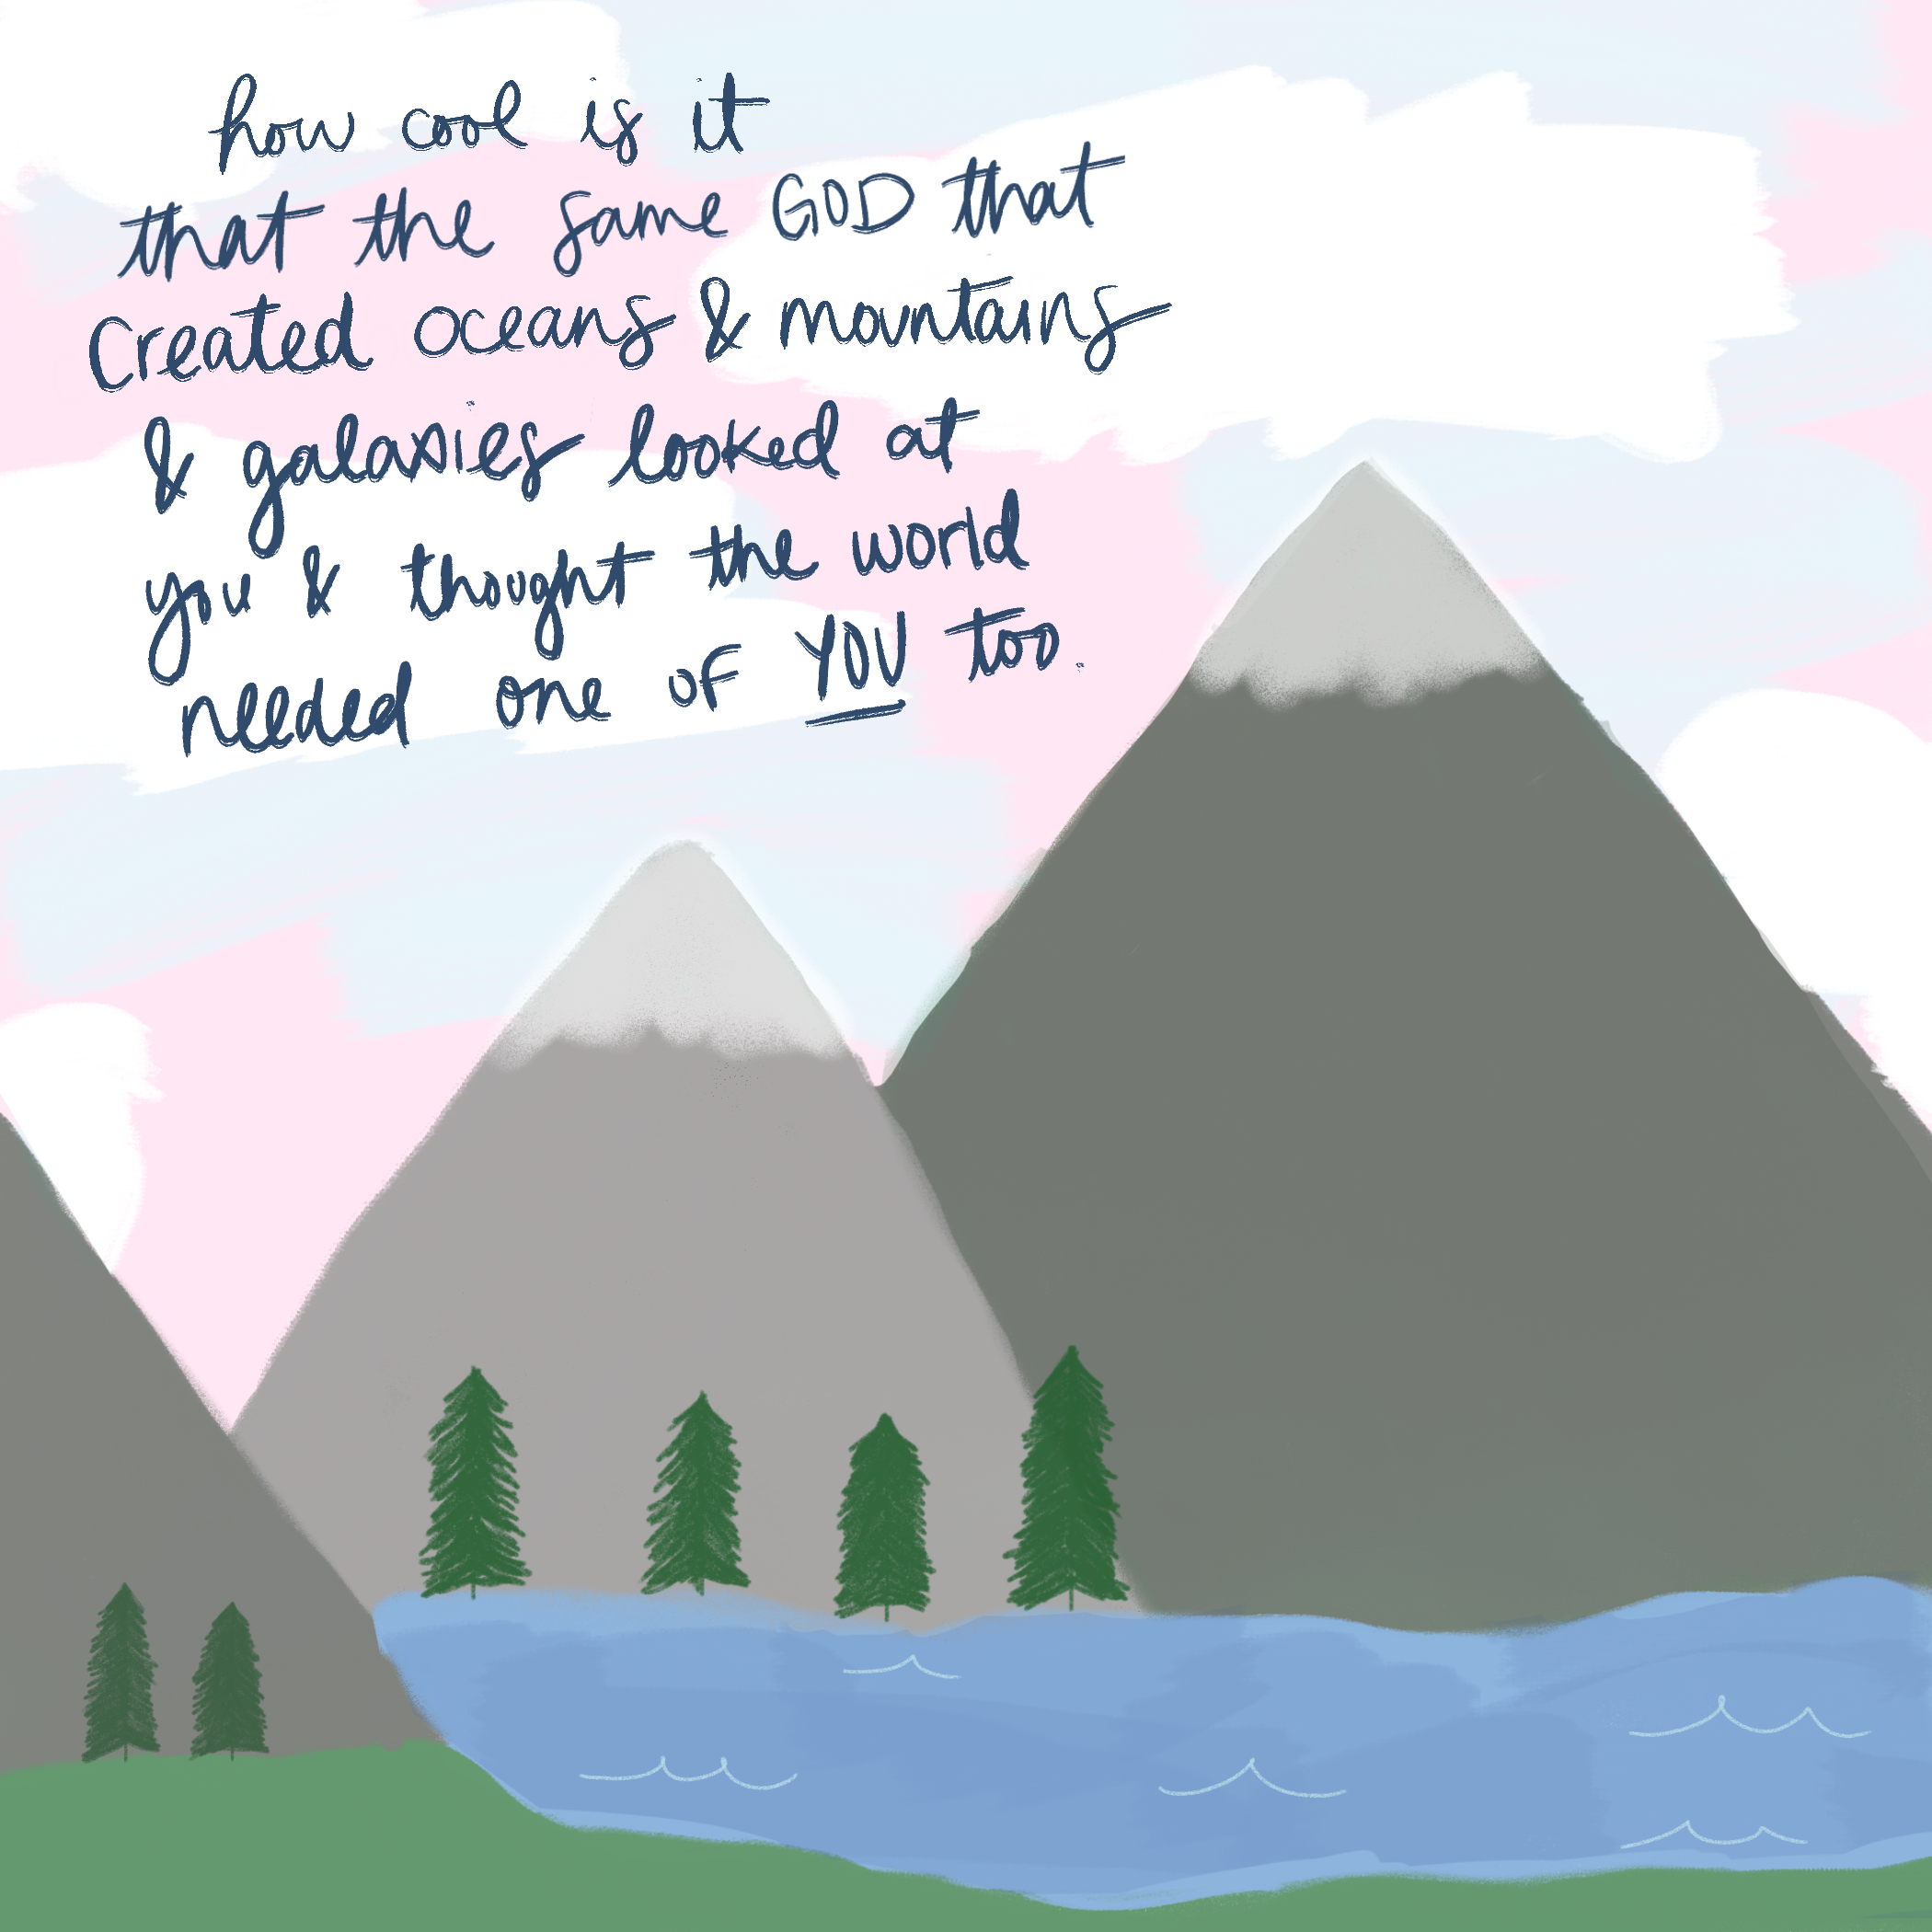 how cool is it
that the same GOD that
created oceans & mountains
& galaxies looked at
you & thought the world
needed one of YOU too.